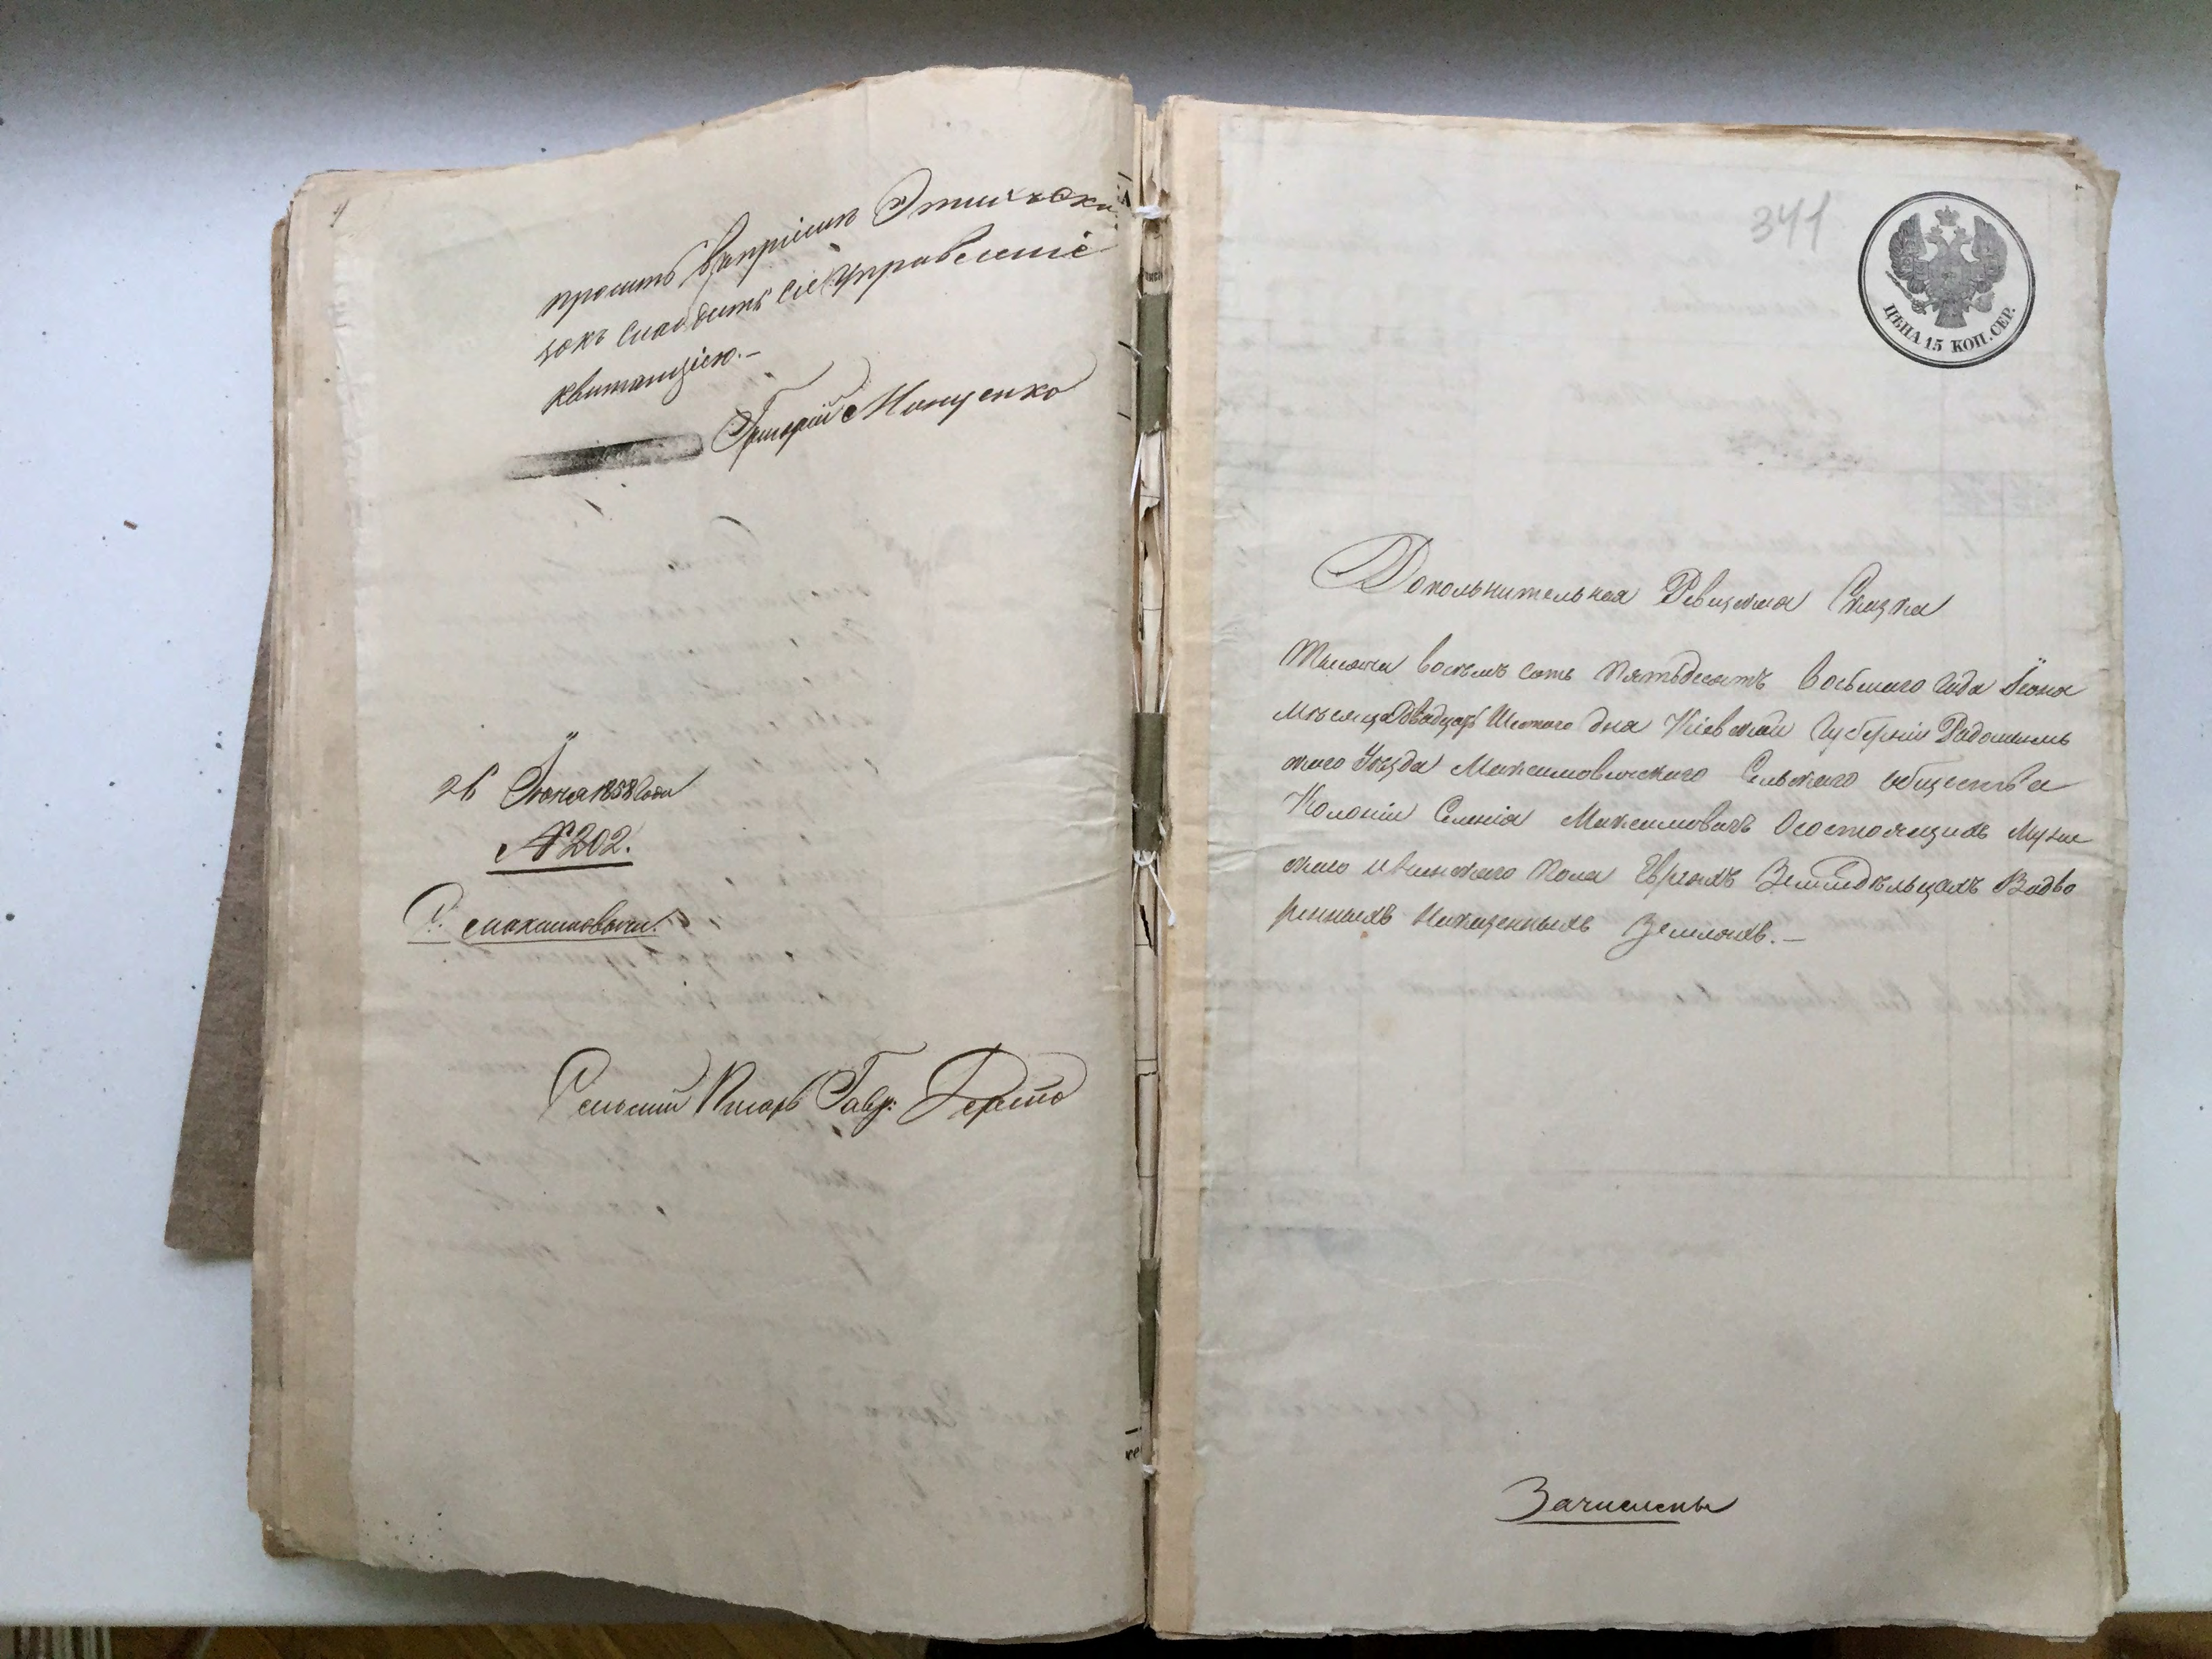 просить впріимѣ Этихъ Ска
зокъ снабдить сіе Управленіе
квитанціею.-
Григорій Мануенко
26 Іюня 1858 Года
№ 202.
С. Максимовичи.
Сельскій Писарь Гавр:
341
ЦѢНА 15 КОП. СЕР.
Дополнительная Ревизская Сказка
Тысяча восемь сотъ Пятьдесятъ восьмаго Года Іюня
Мѣсяца Двадцать Шестаго дня Кіевской Губерніи Радомысль
скаго Уѣзда Максимовичскаго Сельскаго общества
Колоніи Селенія Максимовичъ Осостоящихъ Мужес
скаго иЖенскаго Пола Евреяхъ Земледѣльцахъ Водво
ренныхъ Наказенныхъ Земляхъ.-
Зачислены